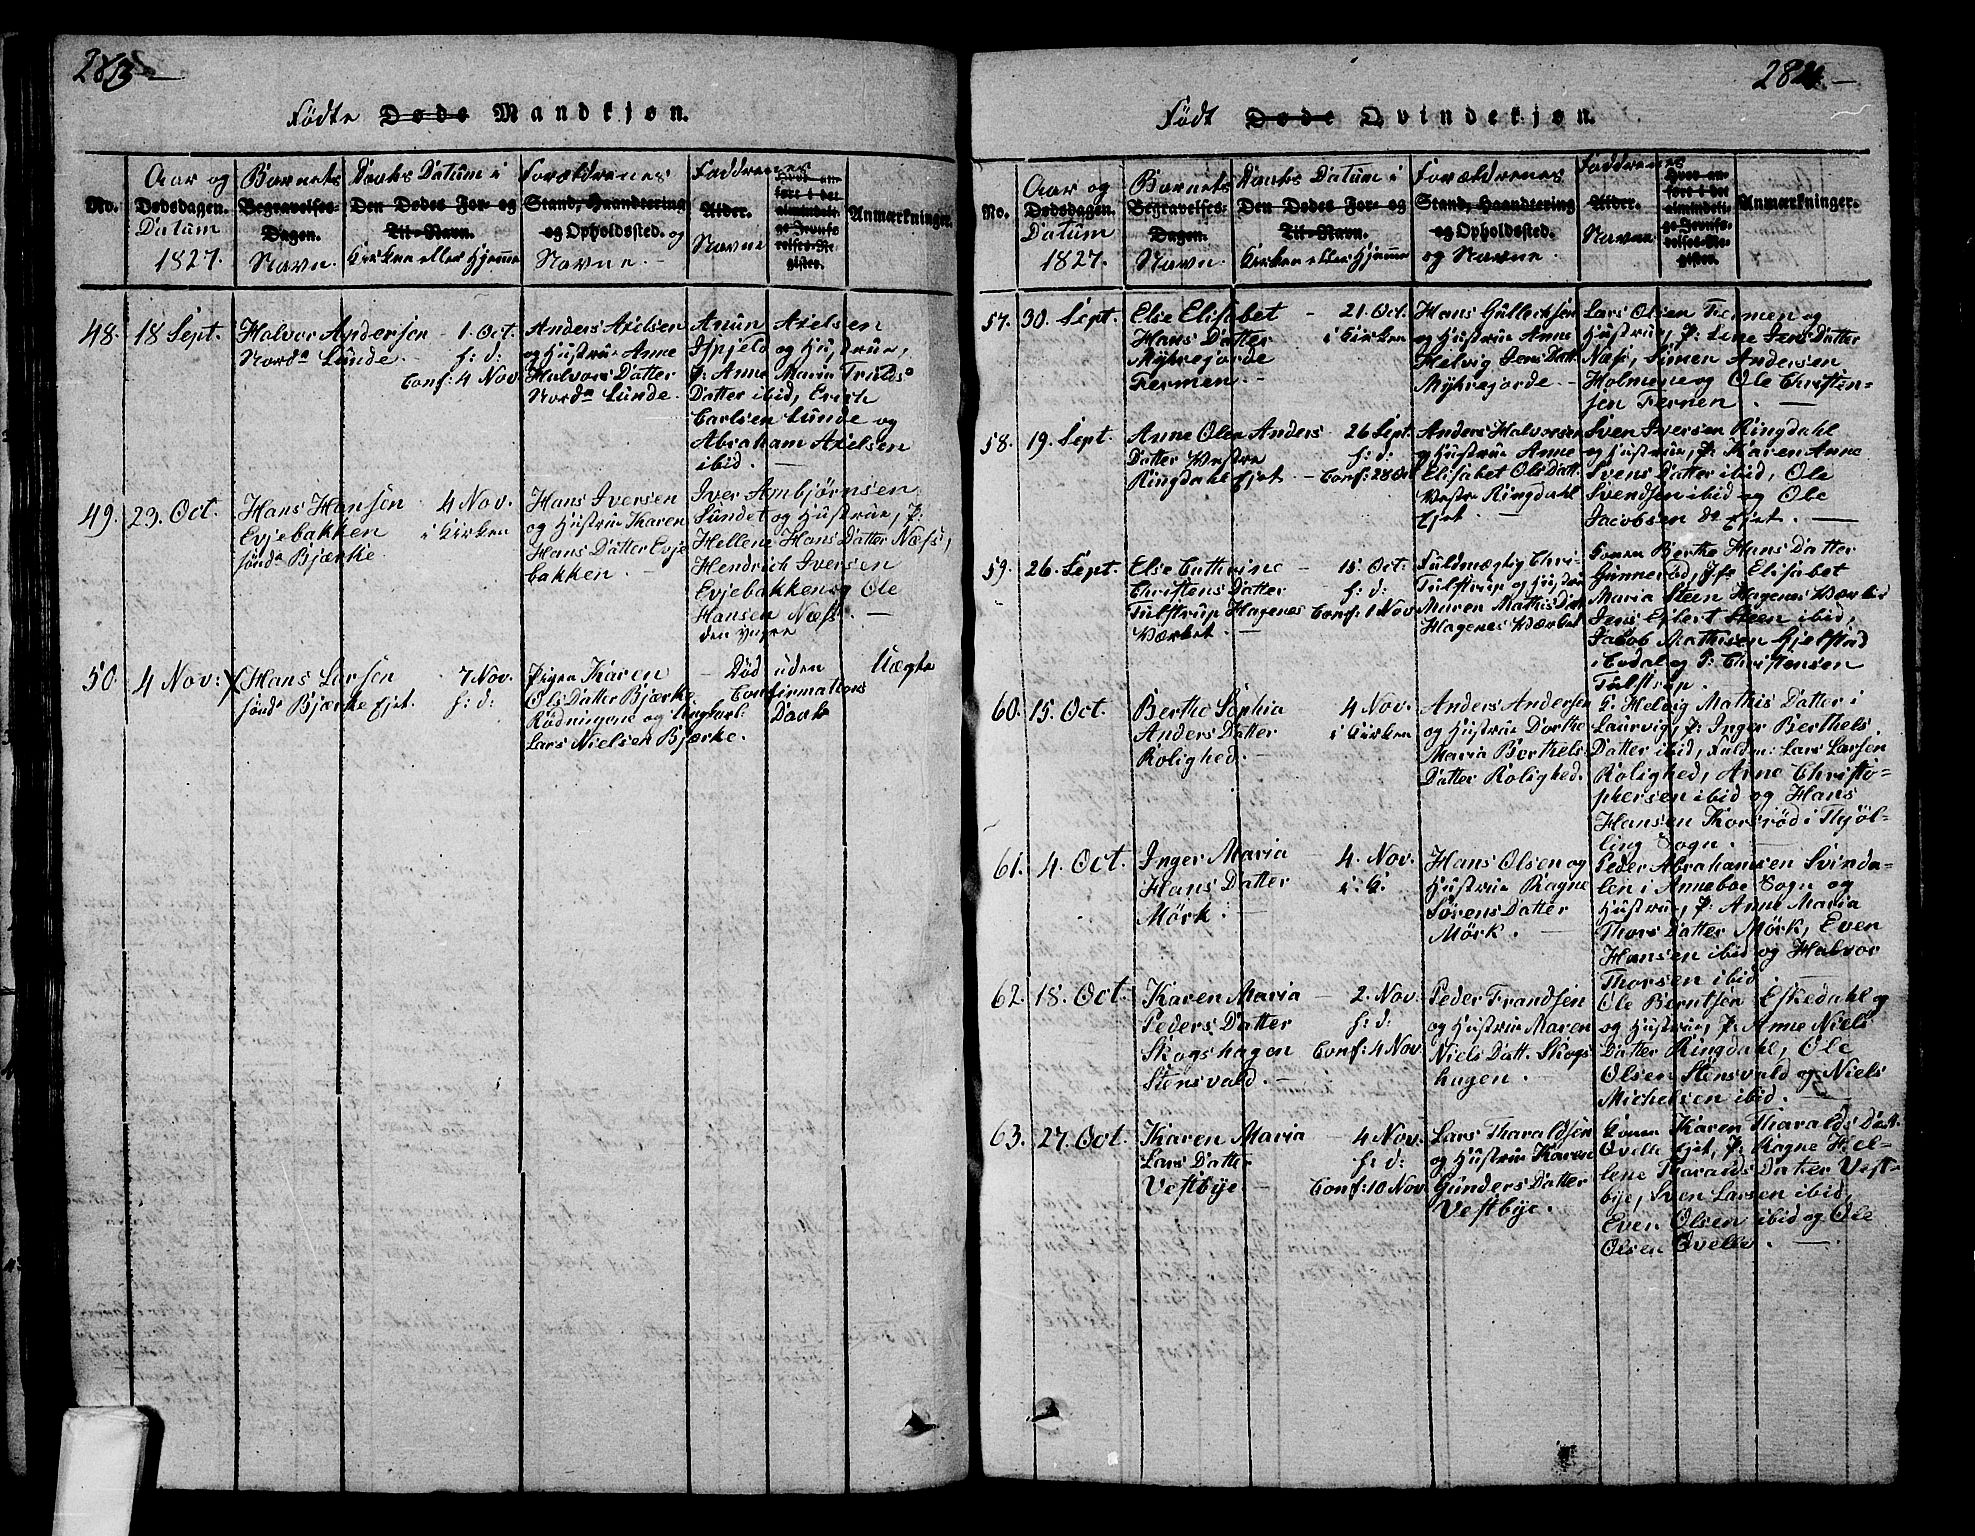 283
Födte Døde Mandkjøn.
No.
Aar og
Dødsdagen.
Datum
1827.
Barnets
Begravelses-
Dagen.
Navn.
Daabs Datum i
Den Dødes For- og
Til-Navn.
Kirken eller Hjemme
Forældrenes
Stand, Haandtering
og Opholdssted. og
Navne.
Faddrenes
Alder.
Navne
Hvor an-
ført i det
almindeli-
ge Jevnfø-
relses-Re-
gister.
Anmærkninger.
48. 18 Sept.
Halvor Andersen
Nordre Lunde.
1. Oct.
h: d:
Conf: 4 Nov
Anders Axelsen
og Hustrue Anne
Halvors Datter
Nordre Lunde.
Anun Axelsen
og Hustrue,
P. Anne Maria Truls
Datter ibid, Erich
Carlsen Lunde og
Abraham Axelsen
ibid.
49. 23. Oct.
Hans Hansen
Evjebakken
söndre Bjærke
4 Nov.
i Kirken
Hans Iversen
og Hustrue Karen
Hans Datter Evje
bakken.
Iver Ambjørnsen
Sundet og Hustrue, P:
Hellene Hans Datter Næss,
Hendrich Iversen
Evjebakken og Ole
Hansen Næss.
den yngre
50. 4 Nov:
Hans Larsen
söndre Bjærke Ejet.
7 Nov.
h: d:
Pigen Karen
Ols Datter Bjærke
Rödningene og Ungkarl:
Lars Nielsen Bjærke.
Död uden
Confirmations
Daab
Uægte
284
Födt Døde Qvindekjøn.
No.
Aar og
Dødsdagen.
Datum
1827.
Barnets
Begravelses-
Dagen.
Navn.
Daabs Datum i
Den Dødes For- og
Til-Navn.
Kirken eller Hjemme
Forældrenes
Stand, Haandtering
og Opholdssted.
og Navne.
Faddrenes
Alder.
Navne
Hvor an-
ført i det
almindeli-
ge Jevnfø-
relses-Re-
gister.
Anmærkninger.
57. 30. Sept.
Else Elisabet
Hans Datter
Myhrejorde
Fermen.
21. Oct.
i Kirken
Hans Gullechsen
og Hustrue Anne
Helvig Jens Datt.
Myhrejorde.
Lars Olsen Fermen og
Hustrue, P: Line Jens Datter
Næss, Simen Andersen
Holmene og Ole Christen-
sen Fermen.
58. 19. Sept.
Anne Olea Anders
Datter Vestre
Ringdahl Ejet
26 Sept.
h: d:
Conf: 28 Oct
Anders Halvorsen
og Hustrue Anne
Elisabet Ols Datt.
Vestre Ringdahl
Ejet.
Sven Iversen Ringdahl
og Hustrue, P: Karen Anne
Svens Datter ibid, Ole
Svendsen ibid og Ole
Jacobsen do Ejet.
59. 26. Sept.
Else Cathrine
Christens Datter
Tulstrup Hagenes
Værket.
15. Oct.
h: d:
Conf: 1 Nov
Fuldmægtig Chri:
Tulstrup og Hustrue
Maren Mathis Datt
Hagenes Værket
Konen Berthe Hans Datter
Gunnerød, Jfr Elisabet
Maria Steen Hagenes Værket
Jens Ejlert Steen ibid,
Jacob Mathisen Gjelstad
i Codal og P: Christensen
Tulstrup.
60. 15. Oct.
Berthe Sophia
Anders Datter
Rolighed.
4 Nov.
i Kirken
Anders Andersen
og Hustrue Dorthe
Maria Berthels
Datter Rolighed.
P. Helvig Mathis Datter i
Laurvig, P: Inger Berthels
Datter ibid, Fuldm: Lars Larsen
Rolighed, Arne Christo-
phersen ibid og Hans
Hansen Thorsröd i Thjöl-
ling Sogn.
61. 4. Oct.
Inger Maria
Hans Datter
Mörk.
4. Nov.
i: K:
Hans Olsen og
Hustrue Ragne
Sörens Datter
Mörk.
Peder Abrahamsen Svinda-
len i Anneboe Sogn og
Hustrue, P: Anne Maria
Thors Datter Mörk, Even
Hansen ibid og Halvor
Thorsen ibid
62. 18. Oct.
Karen Maria
Peders Datter
Skogshagen
Stensvald.
2. Nov.
h: d:
Conf: 4 Nov
Peder Frandsen
og Hustrue Maren
Niels Datt. Skogs
hagen.
Ole Berntsen Eskedahl og
og Hustrue, P: Anne Niels
Datter Ringdahl, Ole
Olsen Stensvald og Niels
Michelsen ibid.
63. 27. Oct.
Karen Maria
Lars Datter
Vestbye
4 Nov.
h: d:
Conf: 10 Nov.
Lars Tharaldsen
og Hustrue Karen
Gunders Datter
Vestbye.
Konen Karen Tharalds Datt.
Qvelle Ejet, P. Ragne Hel-
lene Tharalds Datter Vest-
bye, Sven Larsen ibid,
Even Olsen ibid og Ole
Olsen Qvelle.